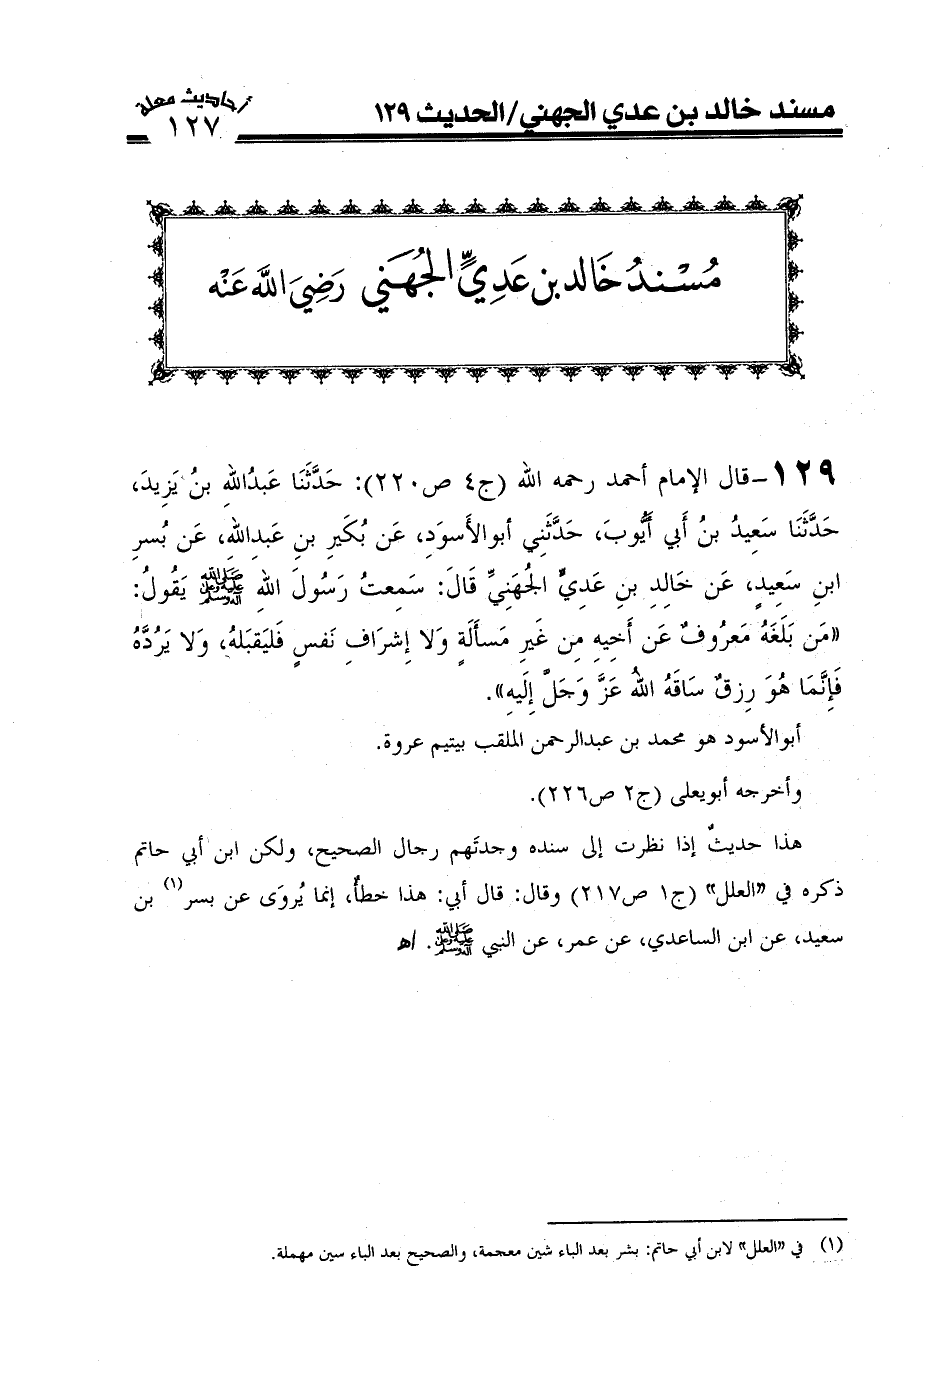 مسند خالد بن عدي الجهني/الحديث ١٢٩
أحاديث معلة
١٢٧
مُسْنَدُ خَالد بن عَدِيٍّ الجُهَني رَضِيَ اللَّه عَنْه
١٢٩-قال الإمام أحمد رحمه الله (ج٤ ص٢٢٠): حَدَّثَنَا عَبدُاللهِ بنُ يَزِيدَ،
حَدَّثَنَا سَعِيدُ بنُ أبي أَيُّوبَ، حَدَّثَنِي أبوالأَسوَدِ، عَن بُكَيرِ بنِ عَبدِاللهِ، عَن بُسرِ
ابنِ سَعِيدٍ، عَن خَالِدِ بنِ عَدِيٍّ الجُهَنِيِّ قَالَ: سَمِعتُ رَسُولَ اللهِ ﷺ يَقُولُ:
«مَن بَلَغَهُ مَعرُوفٌ عَن أَخِيهِ مِن غَيرِ مَسأَلَةٍ وَلا إِشرَافِ نَفسٍ فَليَقبَلهُ، وَلا يَرُدَّهُ
فَإِنَّمَا هُوَ رِزقٌ سَاقَهُ اللهُ عَزَّ وَجَلَّ إِلَيهِ».
أبوالأسود هو محمد بن عبدالرحمن الملقب بيتيم عروة.
وأخرجه أبويعلى (ج٢ ص٢٢٦).
هذا حديثٌ إذا نظرت إلى سنده وجدتَهم رجال الصحيح، ولكن ابن أبي حاتم
ذكره في «العلل» (ج١ ص٢١٧) وقال: قال أبي: هذا خطأٌ، إنما يُروَى عن بسر(١) بن
سعيد، عن ابن الساعدي، عن عمر، عن النبي ﷺ. اﻫ
(١) في «العلل» لابن أبي حاتم: بشر بعد الباء شين معجمة، والصحيح بعد الباء سين مهملة.